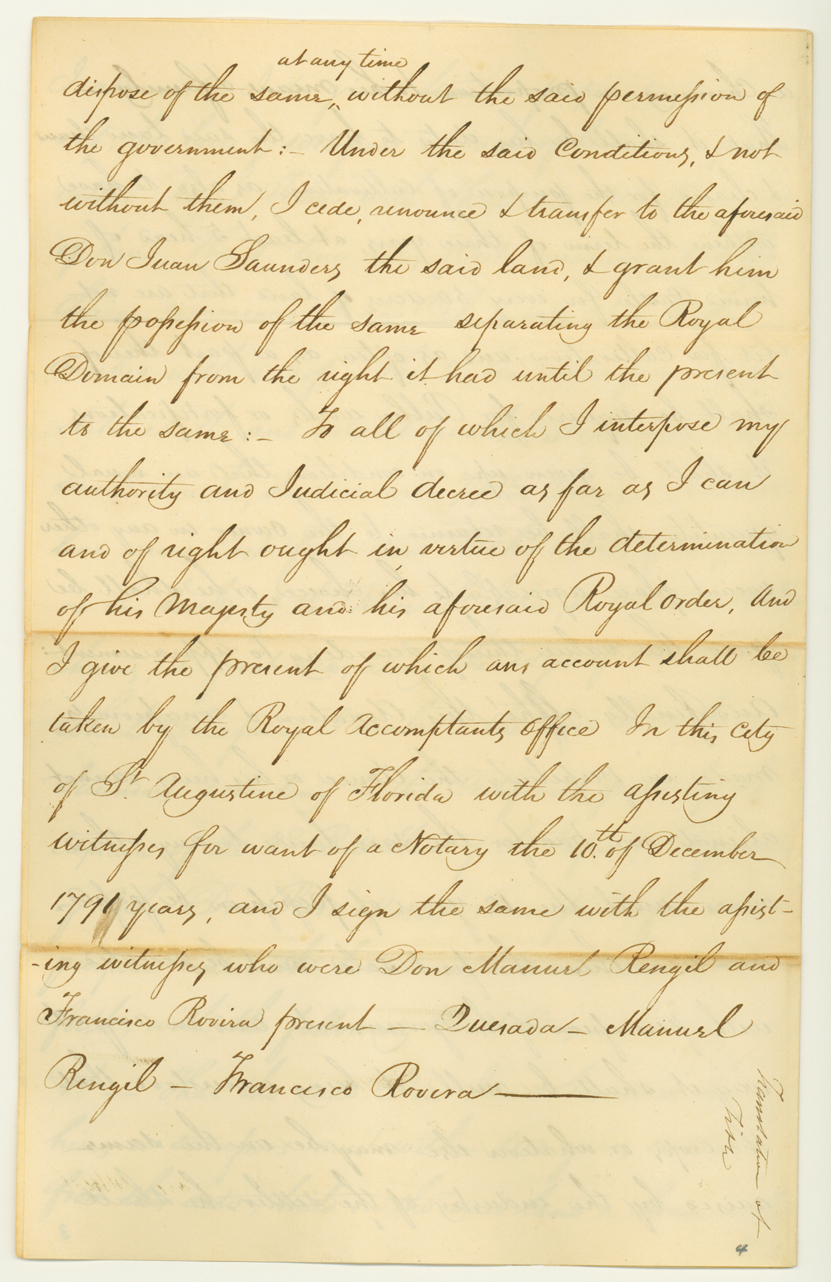 at any time
dispose of the same, without the said permission of
the government :- Under the said Conditions, & not
without them, I cede, renounce & transfer to the aforesaid
Don Juan Saunders, the said land, & grant him
the possession of the same separating the Royal
Domain from the right it had until the present
to the same :- To all of which I interpose my
authority and Judicial decree as far as I can
and of right ought in virtue of the determination
of his Majesty and his aforesaid Royal order, And
I give the present of which an account shall be
taken by the Royal Accomptants office In this city
of St. Augustine of Florida with the assisting
witnesses for want of a Notary the 10.th of December
1791 years, and I sign the same with the assist-
-ing witnesses, who were Don Manuel Rengil and
Francisco Rovira present - Quesada - Manuel
Rengil - Francisco Rovera -
Translation of
Title
4